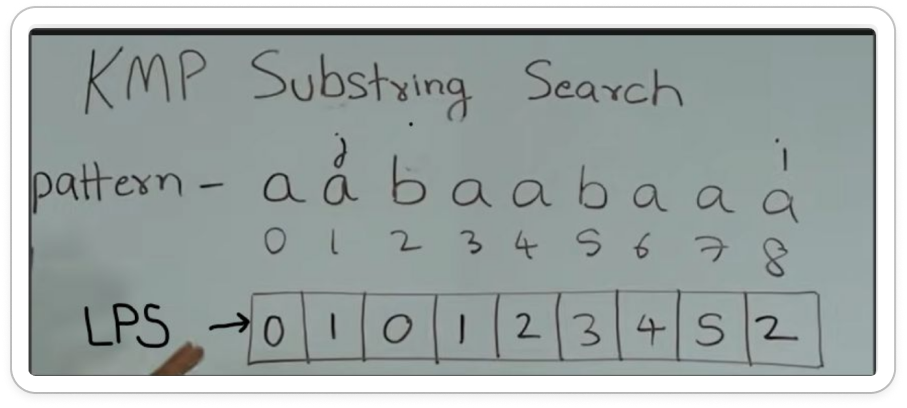 KMP Substring Search
j i
pattern - a a b a a b a a a
0 1 2 3 4 5 6 7 8
LPS → 0 1 0 1 2 3 4 5 2